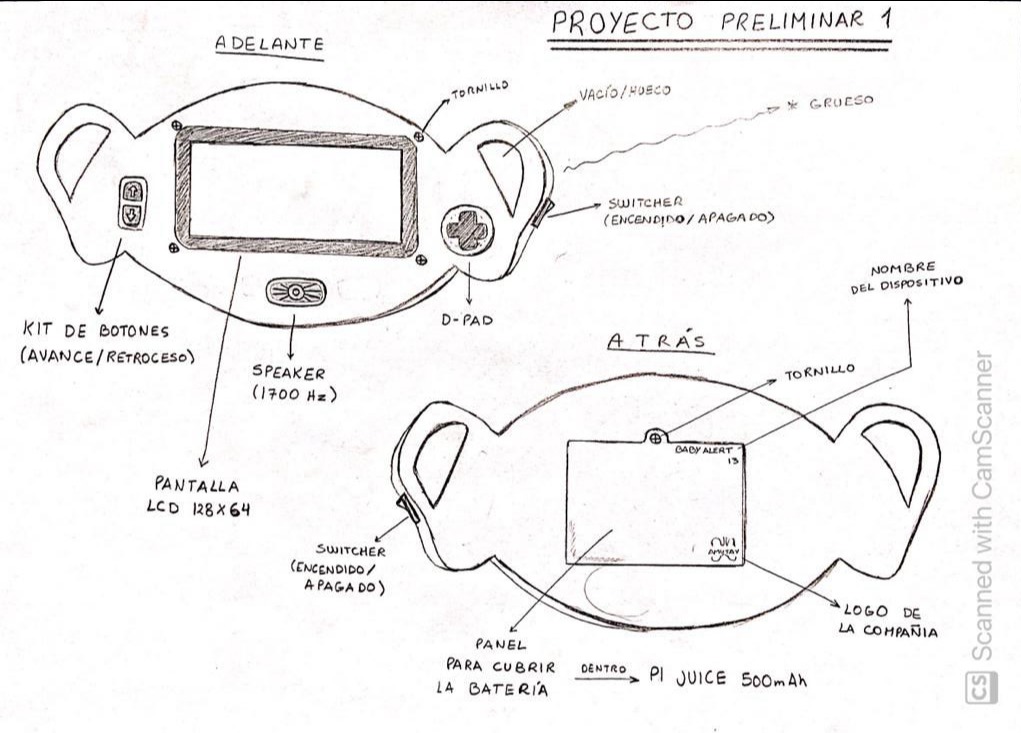 PROYECTO PRELIMINAR 1
ADELANTE
TORNILLO
VACÍO/HUECO
* GRUESO
SWITCHER
(ENCENDIDO/APAGADO)
D-PAD
KIT DE BOTONES
(AVANCE/RETROCESO)
SPEAKER
(1700 Hz)
PANTALLA
LCD 128X64
ATRÁS
NOMBRE
DEL DISPOSITIVO
TORNILLO
BABY ALERT
13
SWITCHER
(ENCENDIDO/
APAGADO)
LOGO DE
LA COMPAÑIA
PANEL
PARA CUBRIR
LA BATERÍA
DENTRO
PI JUICE 500mAh
CS Scanned with CamScanner